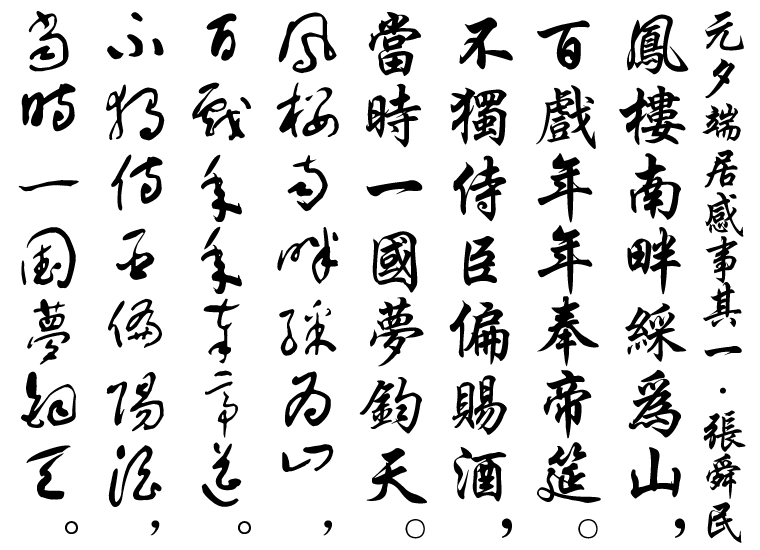 元夕端居感事其一·張舜民
鳳樓南畔綵為山，
百戲年年奉帝筵。
不獨侍臣偏賜酒，
當時一國夢鈞天。
鳳樓南畔綵為山，
百戲年年奉帝筵。
不獨侍臣偏賜酒，
當時一國夢鈞天。